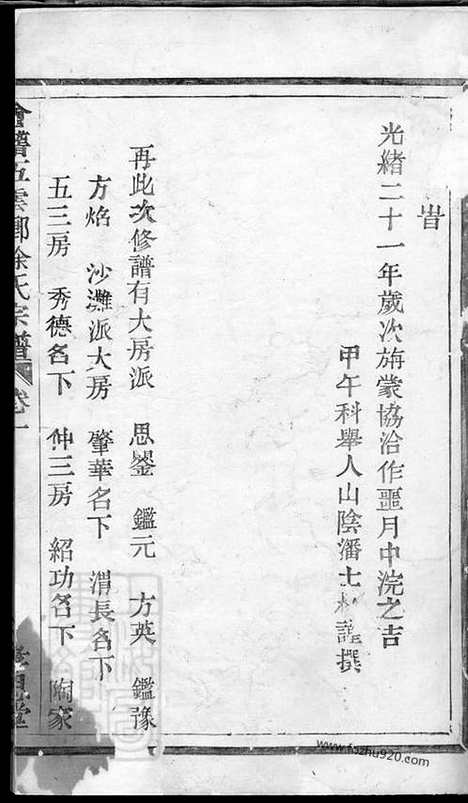 旹
光緒二十一年歲次旃蒙協洽作噩月中浣之吉
甲午科舉人山陰潘士 謹撰
再此次修譜有大房派 思鋆 鑑元 方英 鑑豫
方焰 沙灘派大房 肇華名下 渭長名下
五三房 秀德名下 仲三房 紹功名下 陶家
會譜五雲鄉徐氏宗譜 卷一 堂
www.fozhu920.com